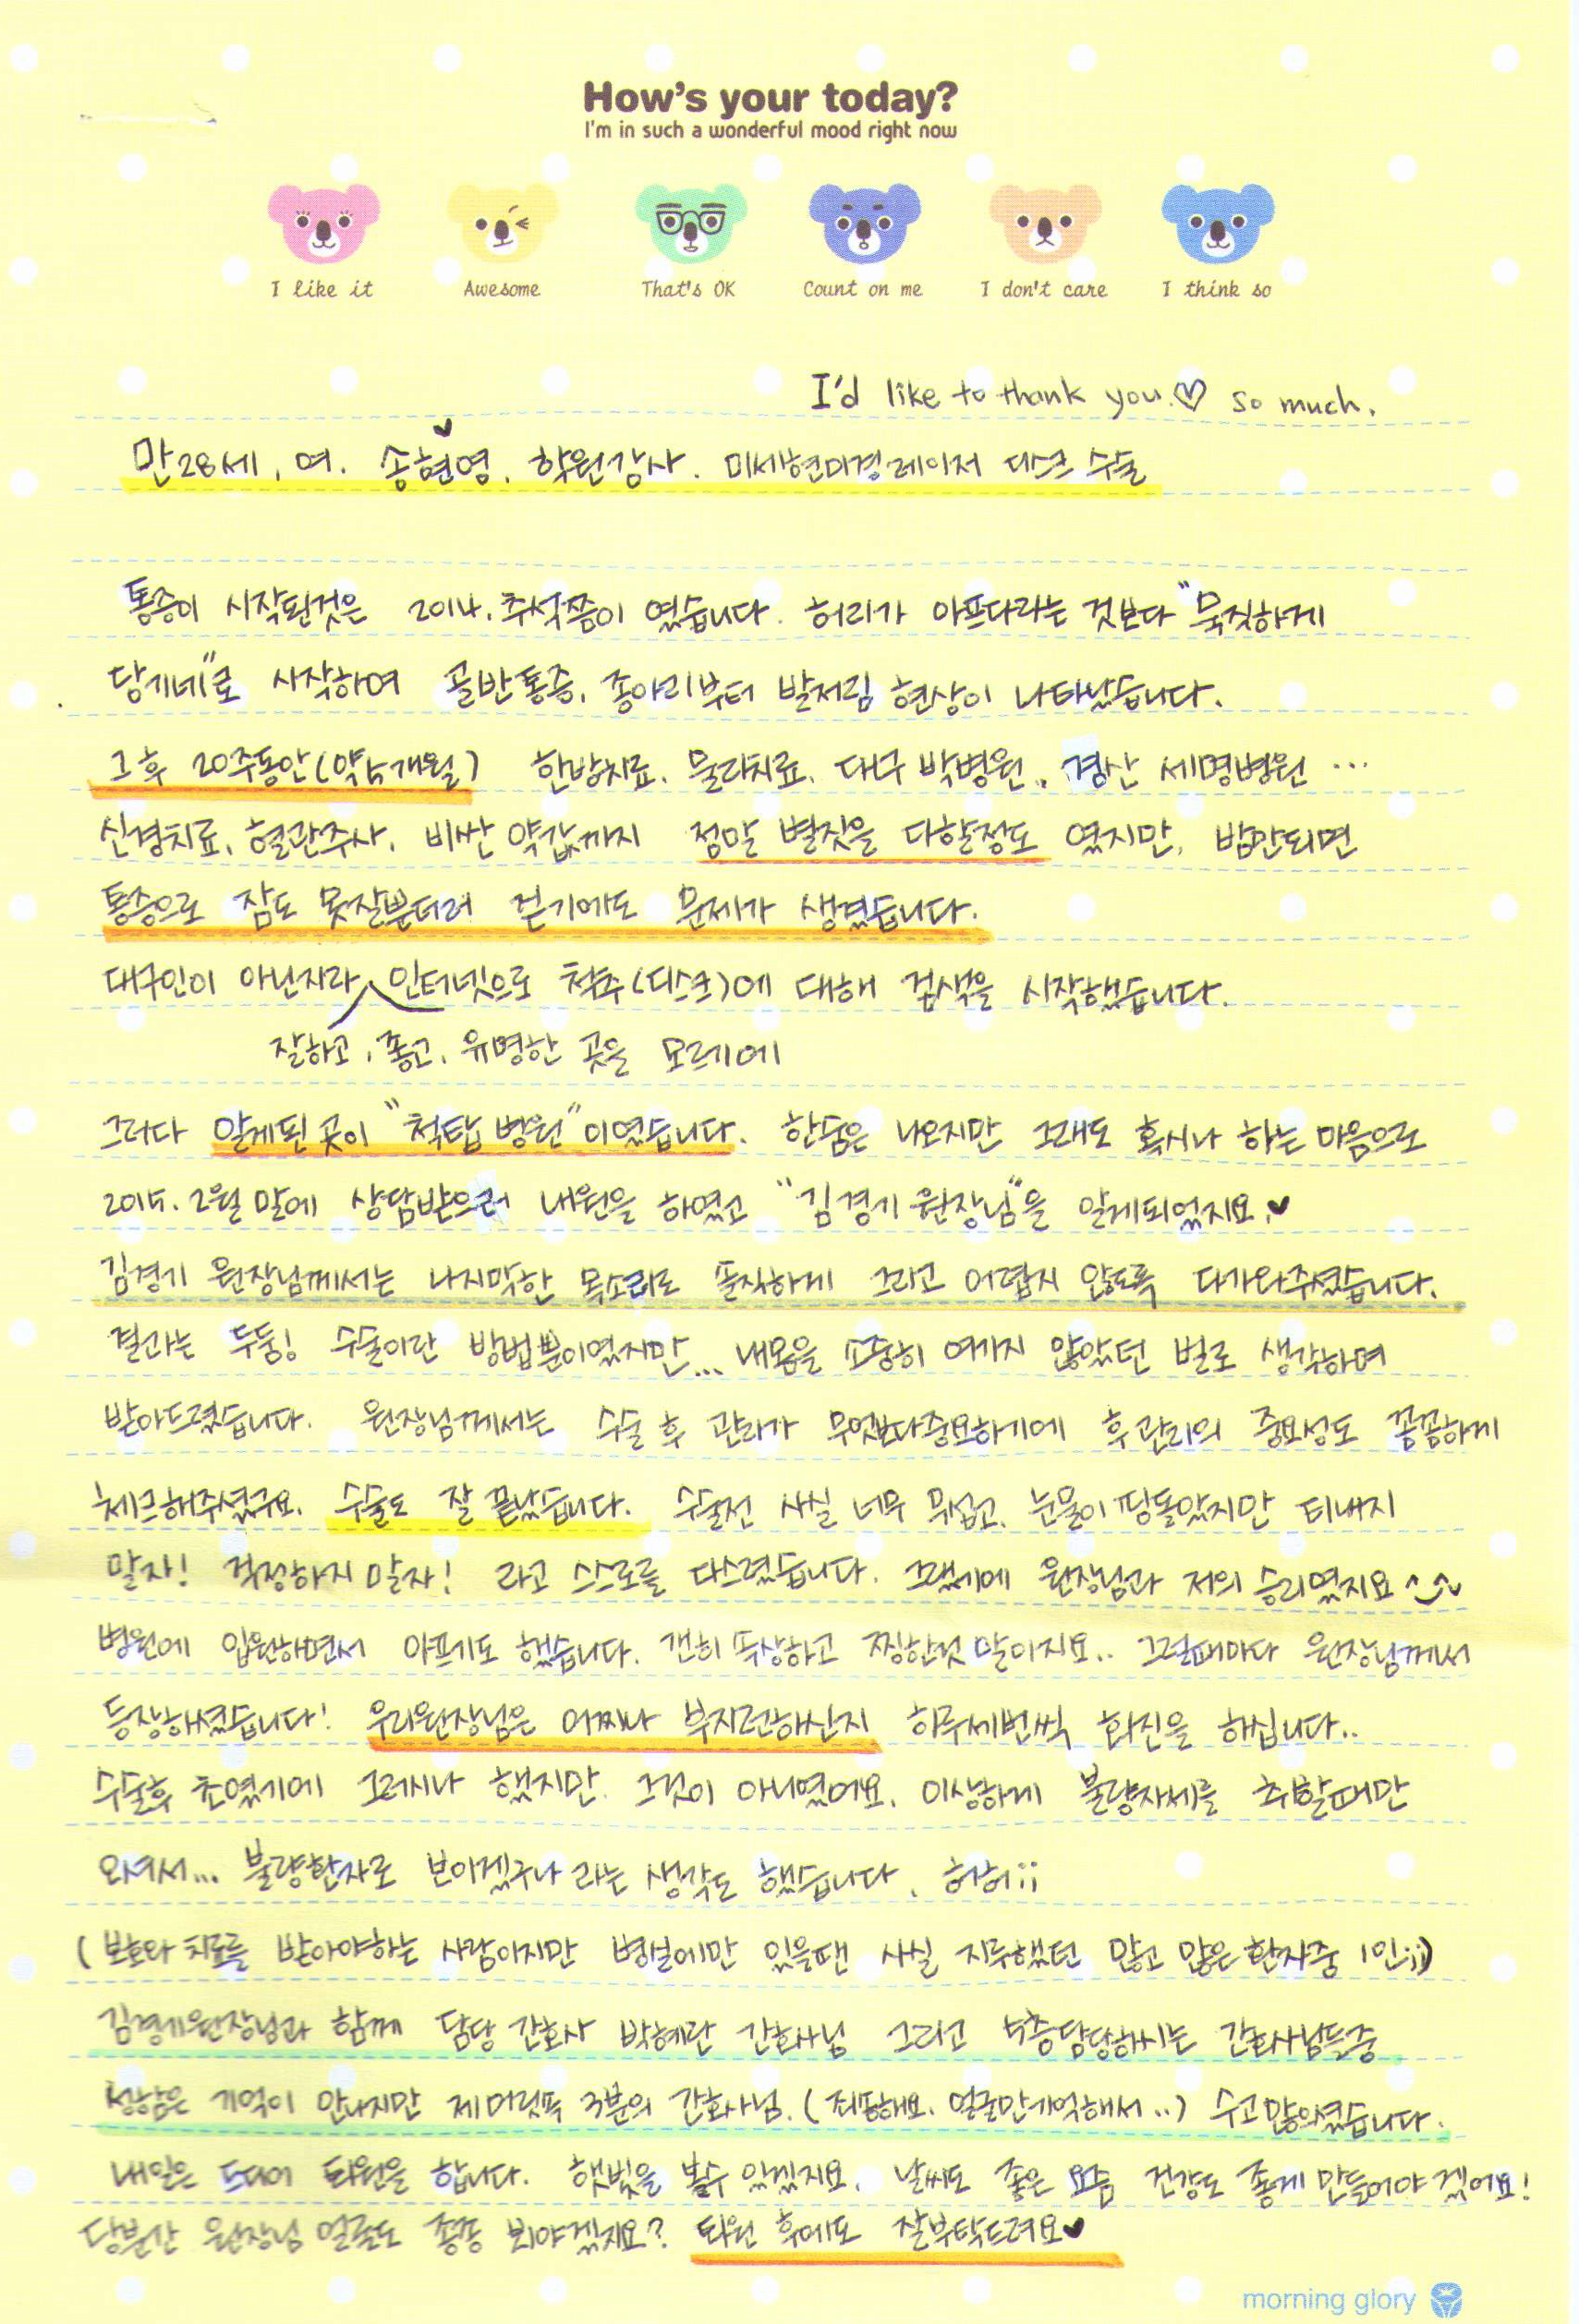 How's your today?
I'm in such a wonderful mood right now
I like it Awesome That's OK Count on me I don't care I think so
I'd like to thank you.♡ so much.
만28세, 여. 송현영, 학원강사. 미세현미경레이저 디스크 수술
통증이 시작된것은 2014. 추석쯤이 였습니다. 허리가 아프다라는 것보다 "묵직하게
당기네"로 시작하여 골반통증, 종아리부터 발저림 현상이 나타났습니다.
그 후 20주동안(약5개월) 한방치료, 물리치료, 대구 박병원, 경산 세명병원 ...
신경치료, 혈관주사, 비싼 약값까지 정말 별짓을 다할정도 였지만, 밤만되면
통증으로 잠도 못잘뿐더러 걷기에도 문제가 생겼습니다.
대구인이 아닌지라 인터넷으로 척추(디스크)에 대해 검색을 시작했습니다.
잘하고, 좋고, 유명한 곳을 모르기에
그러다 알게된 곳이 "척탑병원"이였습니다. 한숨은 나오지만 그래도 혹시나 하는 마음으로
2015. 2월 말에 상담받으러 내원을 하였고 "김경기 원장님"을 알게되었지요.♥
김경기 원장님께서는 나지막한 목소리로 솔직하게 그리고 어렵지 않도록 다가와주셨습니다.
결과는 두둥! 수술이란 방법뿐이였지만... 내몸을 소중히 여기지 않았던 벌로 생각하며
받아드렸습니다. 원장님께서는 수술 후 관리가 무엇보다중요하기에 후관리의 중요성도 꼼꼼하게
체크해주셨구요. 수술도 잘 끝났습니다. 수술전 사실 너무 무섭고, 눈물이 핑돌았지만 티내지
말자! 걱정하지 말자! 라고 스스로를 다스렸습니다. 그랬기에 원장님과 저의 승리였지요^^
병원에 입원하면서 아프기도 했습니다. 괜히 속상하고 찡한것 말이지요.. 그럴때마다 원장님께서
등장하셨습니다! 우리원장님은 어찌나 부지런하신지 하루세번씩 회진을 해십니다..
수술후 초였기에 그러시나 했지만, 그것이 아니였어요. 이상하게 불량자세를 취할때만
오셔서... 불량환자로 보이겠구나 라는 생각도 했습니다. 허허;;
(보호와 치료를 받아야하는 사람이지만 병실에만 있을땐 사실 지루했던 많고 많은 환자중 1인;;)
김경기원장님과 함께 담당 간호사 박혜란 간호사님 그리고 5층담당하시는 간호사님들중
성함은 기억이 안나지만 제머릿속 3분의 간호사님. (죄송해요. 얼굴만기억해서..) 수고많으셨습니다.
내일은 드디어 퇴원을 합니다. 햇빛을 볼수 있겠지요. 날씨도 좋은 요즘 건강도 좋게 만들어야 겠어요!
당분간 원장님 얼굴도 종종 뵈야겠지요? 퇴원 후에도 잘부탁드려요♥
morning glory